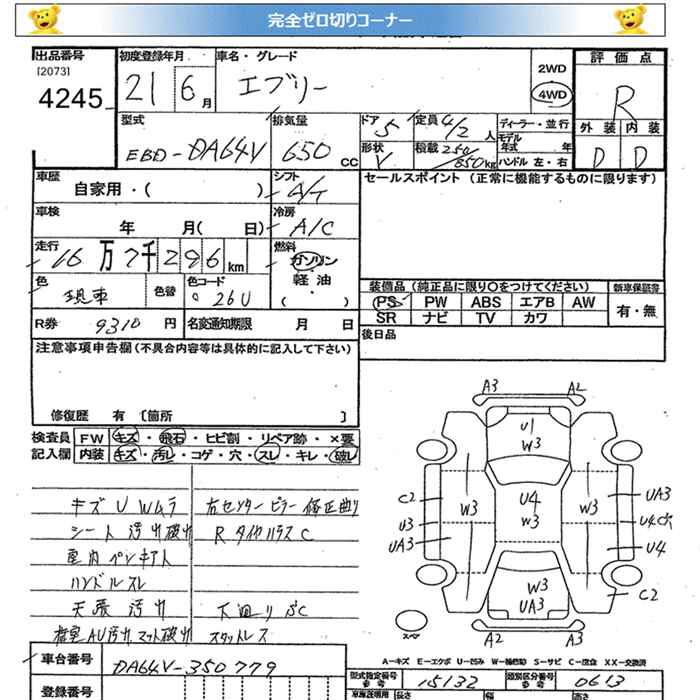 完全ゼロ切りコーナー
出品番号 初度登録年月 車名・グレード 2WD 評価点
[2073]
4245 21 6月 エブリー 4WD R
型式 排気量 ドア 5 定員 4/2人 ディーラー・並行 外装 内装
EBD-DA64V 650 cc 形状 V 積載 250/350kg モデル年式 年 ハンドル 左・右 D D
車歴 自家用・( ) シフト A/T セールスポイント (正常に機能するものに限ります)
車検 年 月( 日) 冷房 A/C
走行 16万7千296km 燃料 ガソリン
軽油
・( )
色 現車 色替 色コード 26U 装備品 (純正品に限り〇をつけてください) 新車保証書
PS PW ABS エアB AW 有・無
R券 9310円 名変通知期限 月 日 SR ナビ TV カワ
注意事項申告欄(不具合内容等は具体的に記入して下さい) 後日品
修復歴 有 [箇所 ]
検査員 FW キズ・飛石・ヒビ割・リペア跡・×要
記入欄 内装 キズ・汚レ・コゲ・穴・スレ・キレ・破レ
キズ U Wムラ 右センターピラー修正曲り
シート汚レ破レ RタイヤハウスC
室内ペンキアト
ハンドルスレ
天張汚レ 下廻りSC
荷室AU汚レ マット破レ スタットレス
A3 A2
U1
W3
C2 W3 U4 W3 UA3
U3 W3 U4
UA3 U4
W3 C2
UA3
スペア A2 A3
A-キズ E-エクボ U-凹み W-補修跡 S-サビ C-腐食 XX-交換済
車台番号 DA64V-350779 型式指定番号 15132 類別区分番号 0613
登録番号 自動車証明用 長さ 幅 高さ